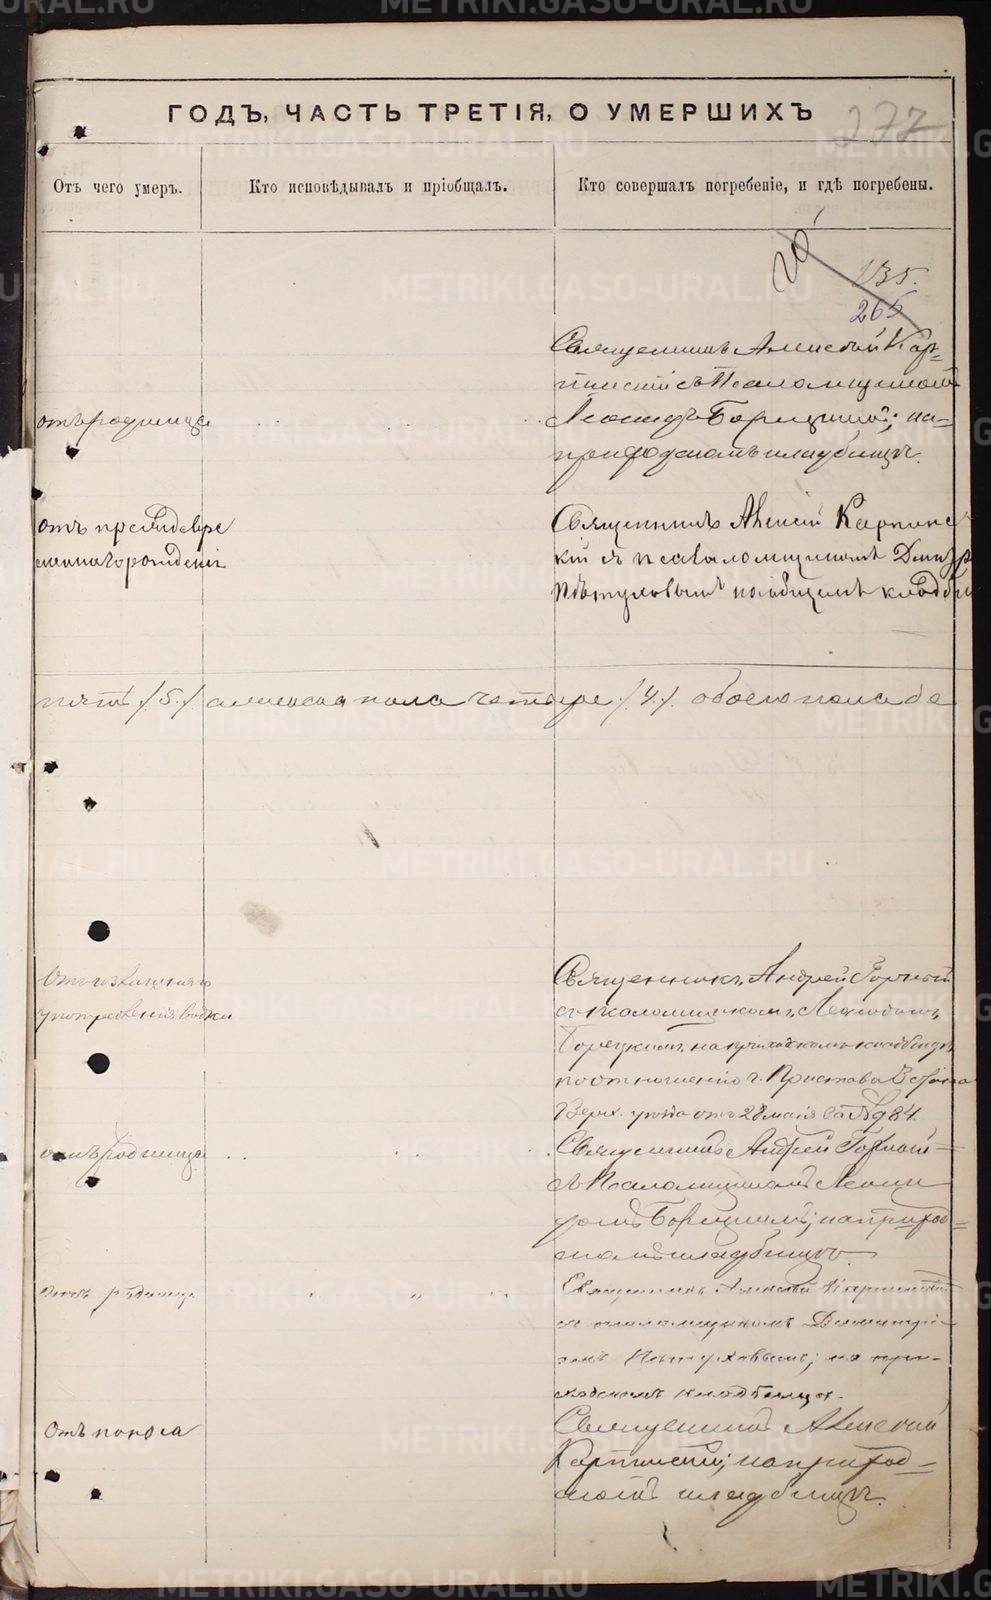 ГОДЪ, ЧАСТЬ ТРЕТІЯ, О УМЕРШИХЪ
277
Отъ чего умеръ.
Кто исповѣдывалъ и пріобщалъ.
Кто совершалъ погребеніе, и гдѣ погребены.
135.
265
Священникъ Алексѣй Кар-
пинскій съ Псаломщикомъ
отъ родимца
Леонидъ Борецкимъ; на-
приходскомъ кладбищѣ.
отъ преждевре
меннаго рожденія
Священникъ Алексѣй Карпинс
кій съ псаломщикомъ Димитр
Пѣтуховымъ на общемъ кладби
пять /5./ женскаго пола четыре /4./ обоего пола де
Отъ излишняго
употребленія водки
Священникъ Андрей Горный
съ псаломщикомъ Леонидомъ
Борецкимъ на приходскомъ кладбищѣ
по отношенію г. Пристава
Верх. уѣзда отъ 28 мая за № 84.
отъ родимца
Священникъ Андрей Горный
съ Псаломщикомъ Леони
домъ Борецкимъ; на приход-
скомъ кладбищѣ
отъ родимца
Священникъ Алексѣй Карпинскій
съ псаломщикомъ Димитрі-
емъ Пѣтуховымъ; на при-
ходскомъ кладбищѣ.
Отъ поноса
Священникъ Алексѣй
Карпинскій; на приход-
скомъ кладбищѣ.
METRIKI.GASO-URAL.RU